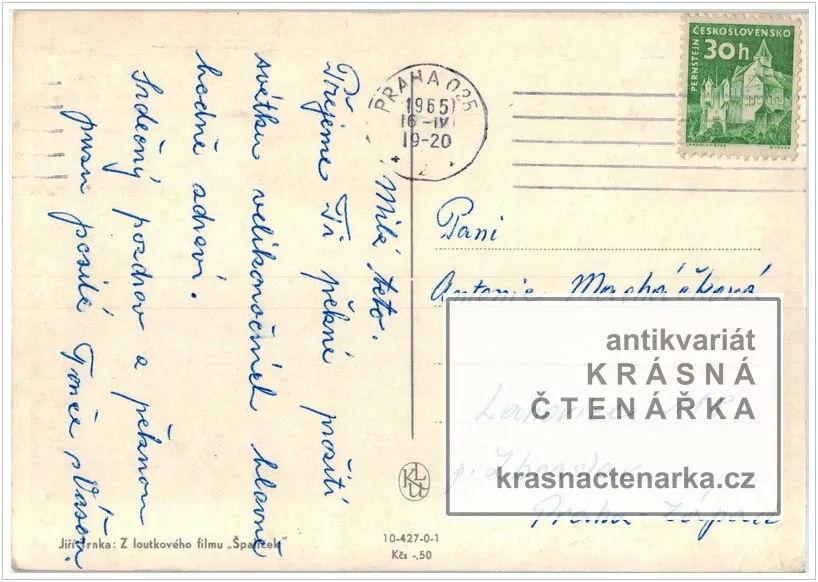 Milá teto.
Přejeme Ti pěkné prožití
svátků velikonočních hlavně
hodně zdraví.
Srdečný pozdrav a pěknou
pusu posílá Tonča s Vášou.
Jiří Trnka: Z loutkového filmu „Špalíček“
PRAHA 025
1965
16-IV
19-20
2
ČESKOSLOVENSKO
30h
PERNŠTEJN
Paní
Antonie Macháčková
antikvariát
KRÁSNÁ
ČTENÁŘKA
p. Zbraslav
krasnactenarka.cz
Praha-Západ
KLU
10-427-0-1
Kčs -,50